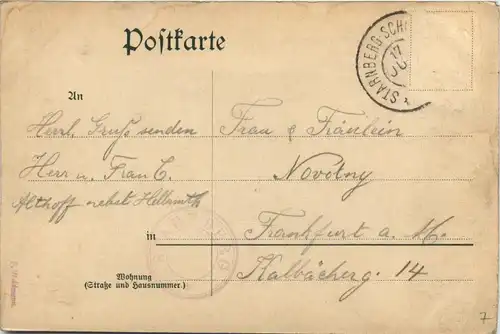 Postkarte
STARNBERG-SCH
17
JU
An
Herzl. Gruß senden
Herr u. Frau C.
Althoff nebst Hellmuth
Frau & Fräulein
Novotny
in Frankfurt a. M.
Kalbächerg. 14
Wohnung
(Straße und Hausnummer.)
7